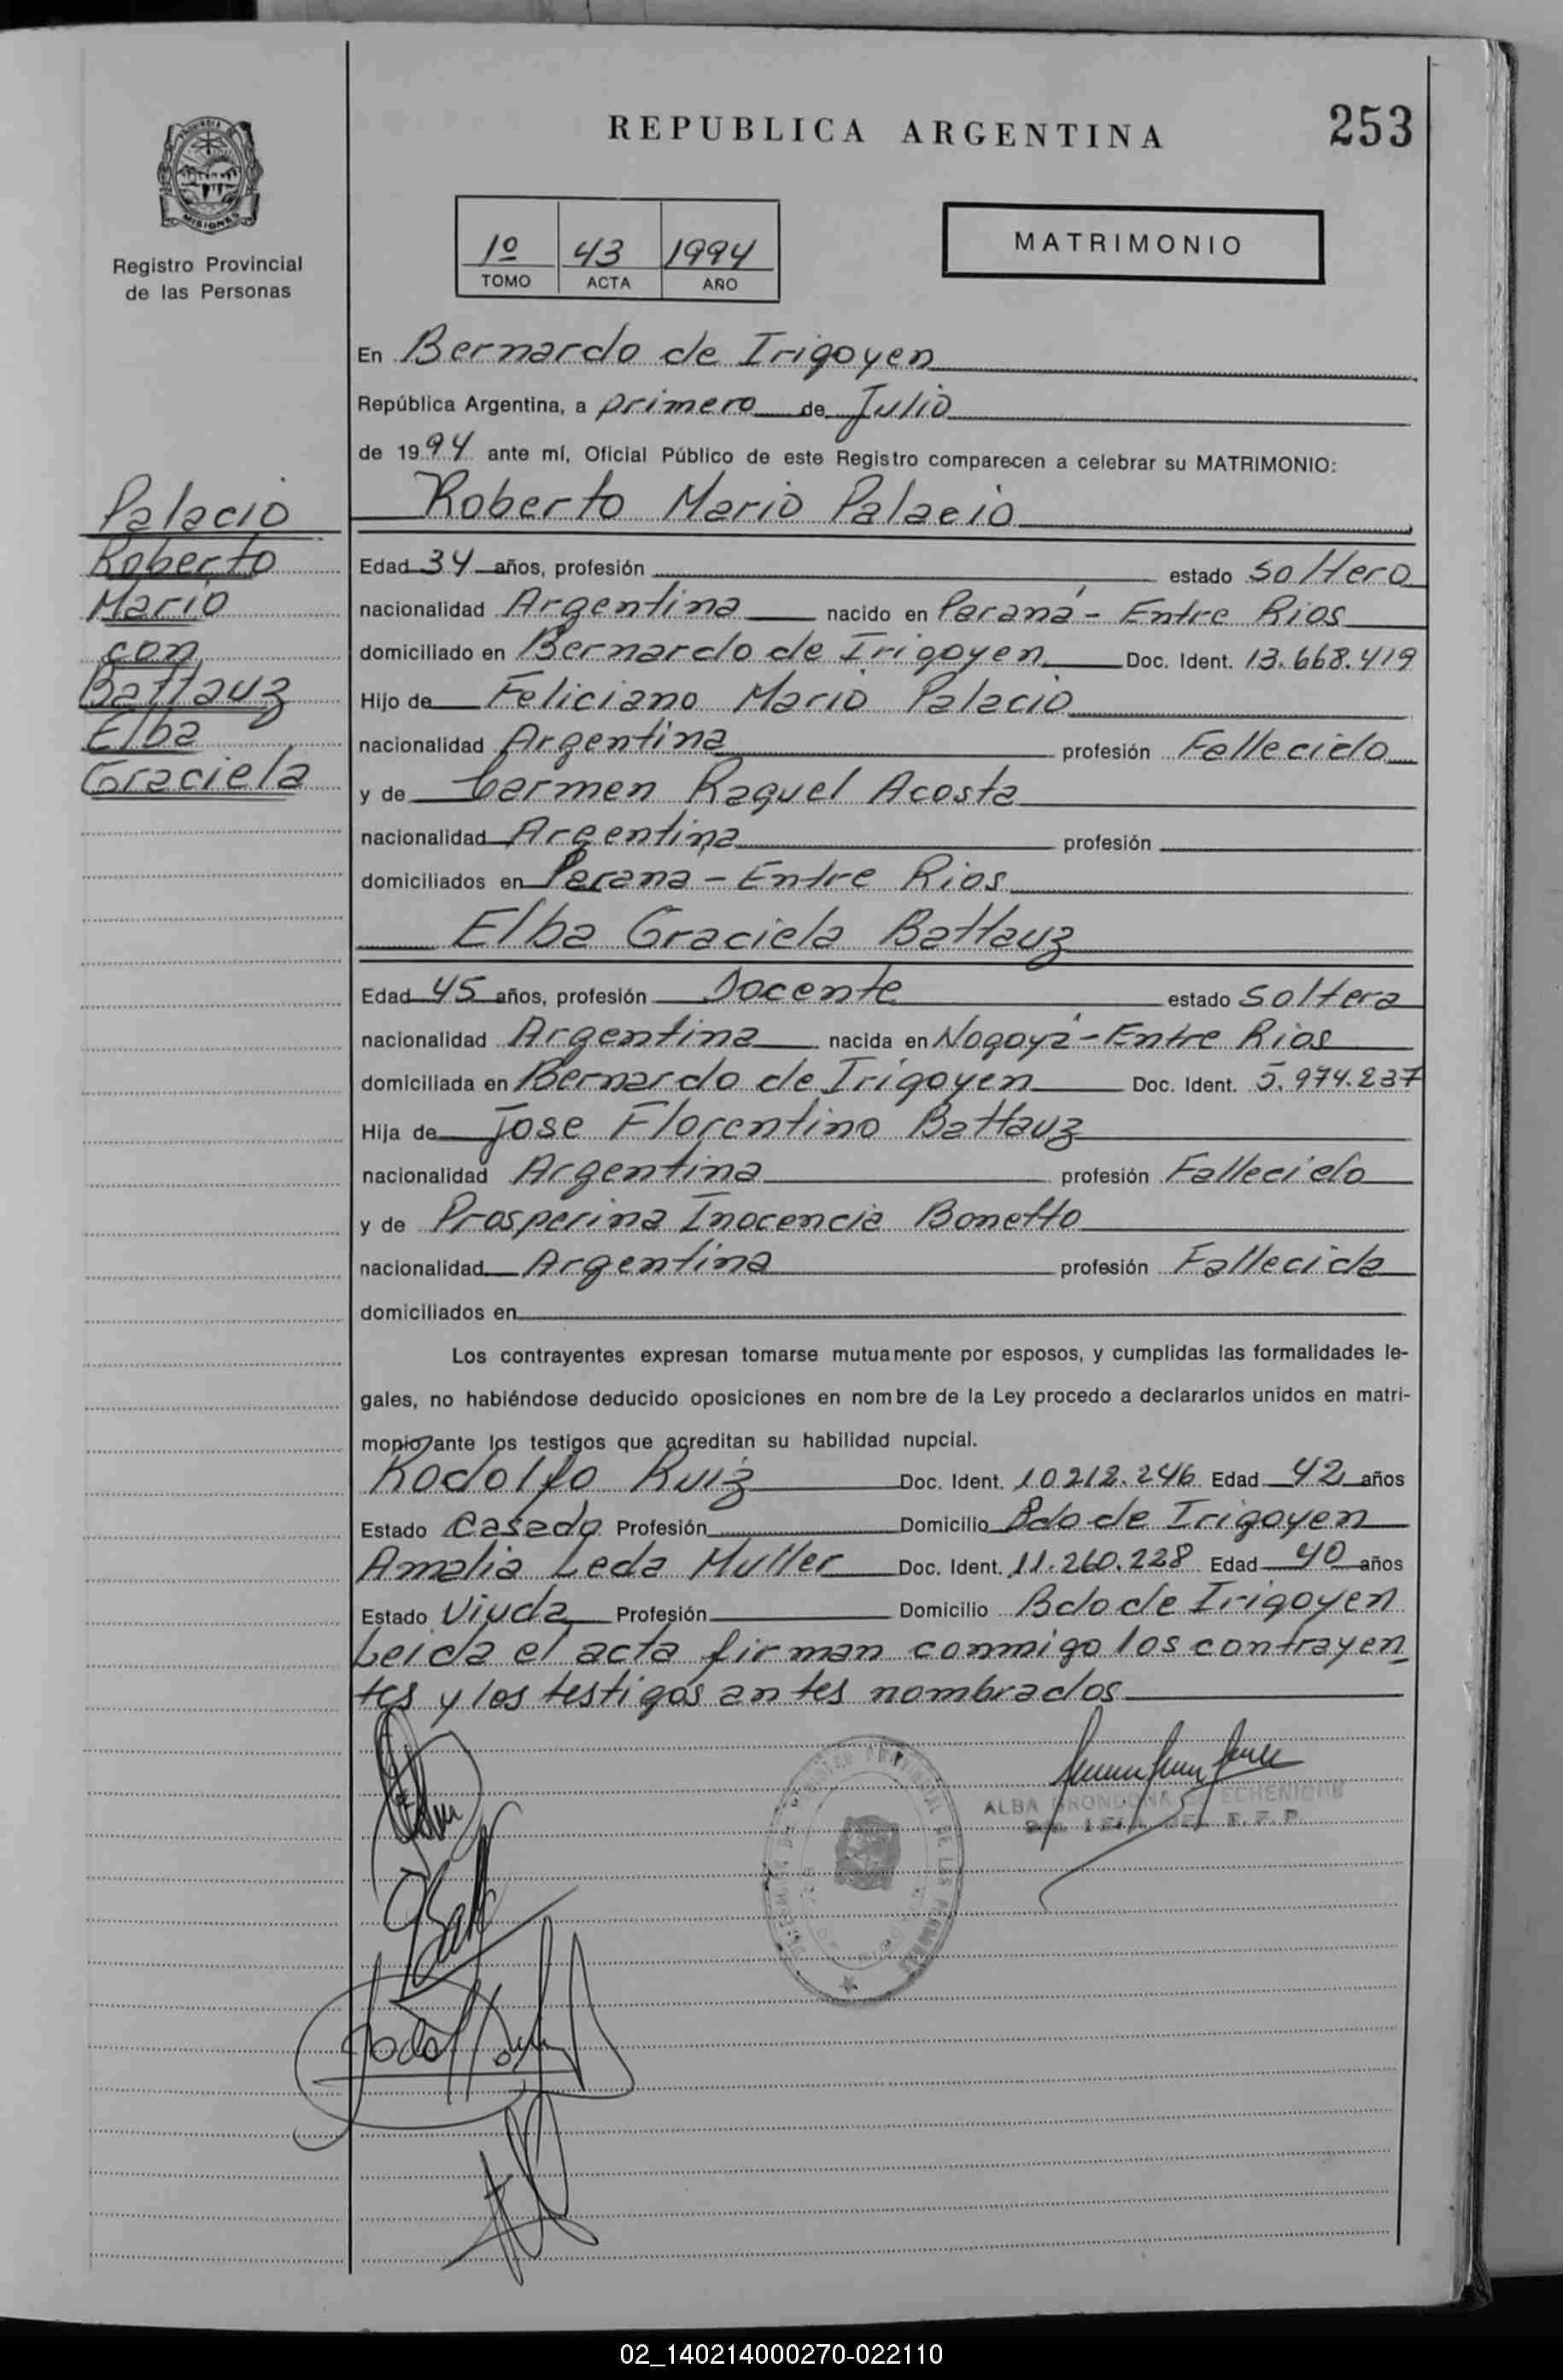 REPUBLICA ARGENTINA
253
PROVINCIA DE
MISIONES
Registro Provincial
de las Personas
1º 43 1994
TOMO ACTA AÑO
MATRIMONIO
En Bernardo de Irigoyen
República Argentina, a primero de Julio
de 1994 ante mí, Oficial Público de este Registro comparecen a celebrar su MATRIMONIO:
Palacio
Roberto
Mario
con
Battauz
Elba
Graciela
Roberto Mario Palacio
Edad 34 años, profesión estado soltero
nacionalidad Argentina nacido en Paraná - Entre Rios
domiciliado en Bernardo de Irigoyen Doc. Ident. 13.668.419
Hijo de Feliciano Mario Palacio
nacionalidad Argentina profesión Fallecido
y de Carmen Raquel Acosta
nacionalidad Argentina profesión
domiciliados en Parana - Entre Rios
Elba Graciela Battauz
Edad 45 años, profesión Docente estado soltera
nacionalidad Argentina nacida en Nogoyá - Entre Rios
domiciliada en Bernardo de Irigoyen Doc. Ident. 5.974.237
Hija de Jose Florentino Battauz
nacionalidad Argentina profesión Fallecido
y de Prosperina Inocencia Bonetto
nacionalidad Argentina profesión Fallecida
domiciliados en
Los contrayentes expresan tomarse mutuamente por esposos, y cumplidas las formalidades le-
gales, no habiéndose deducido oposiciones en nombre de la Ley procedo a declararlos unidos en matri-
monio ante los testigos que acreditan su habilidad nupcial.
Rodolfo Ruiz Doc. Ident. 10.212.246 Edad 42 años
Estado Casado Profesión Domicilio Bdo de Irigoyen
Amalia Leda Muller Doc. Ident. 11.260.228 Edad 40 años
Estado Viuda Profesión Domicilio Bdo de Irigoyen
Leida el acta firman conmigo los contrayen
tes y los testigos antes nombrados
ALBA BRONDONA DE ECHENIQUE
02_140214000270-022110